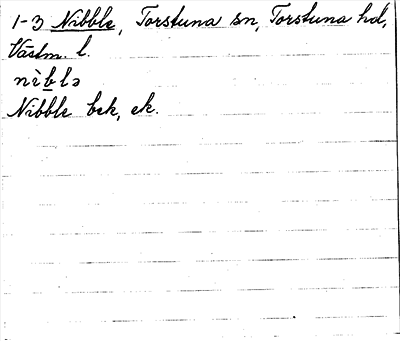 1-3 Nibble, Torstuna sn, Torstuna hd,
Västm. l.
nìblə
Nibble bek, ek.